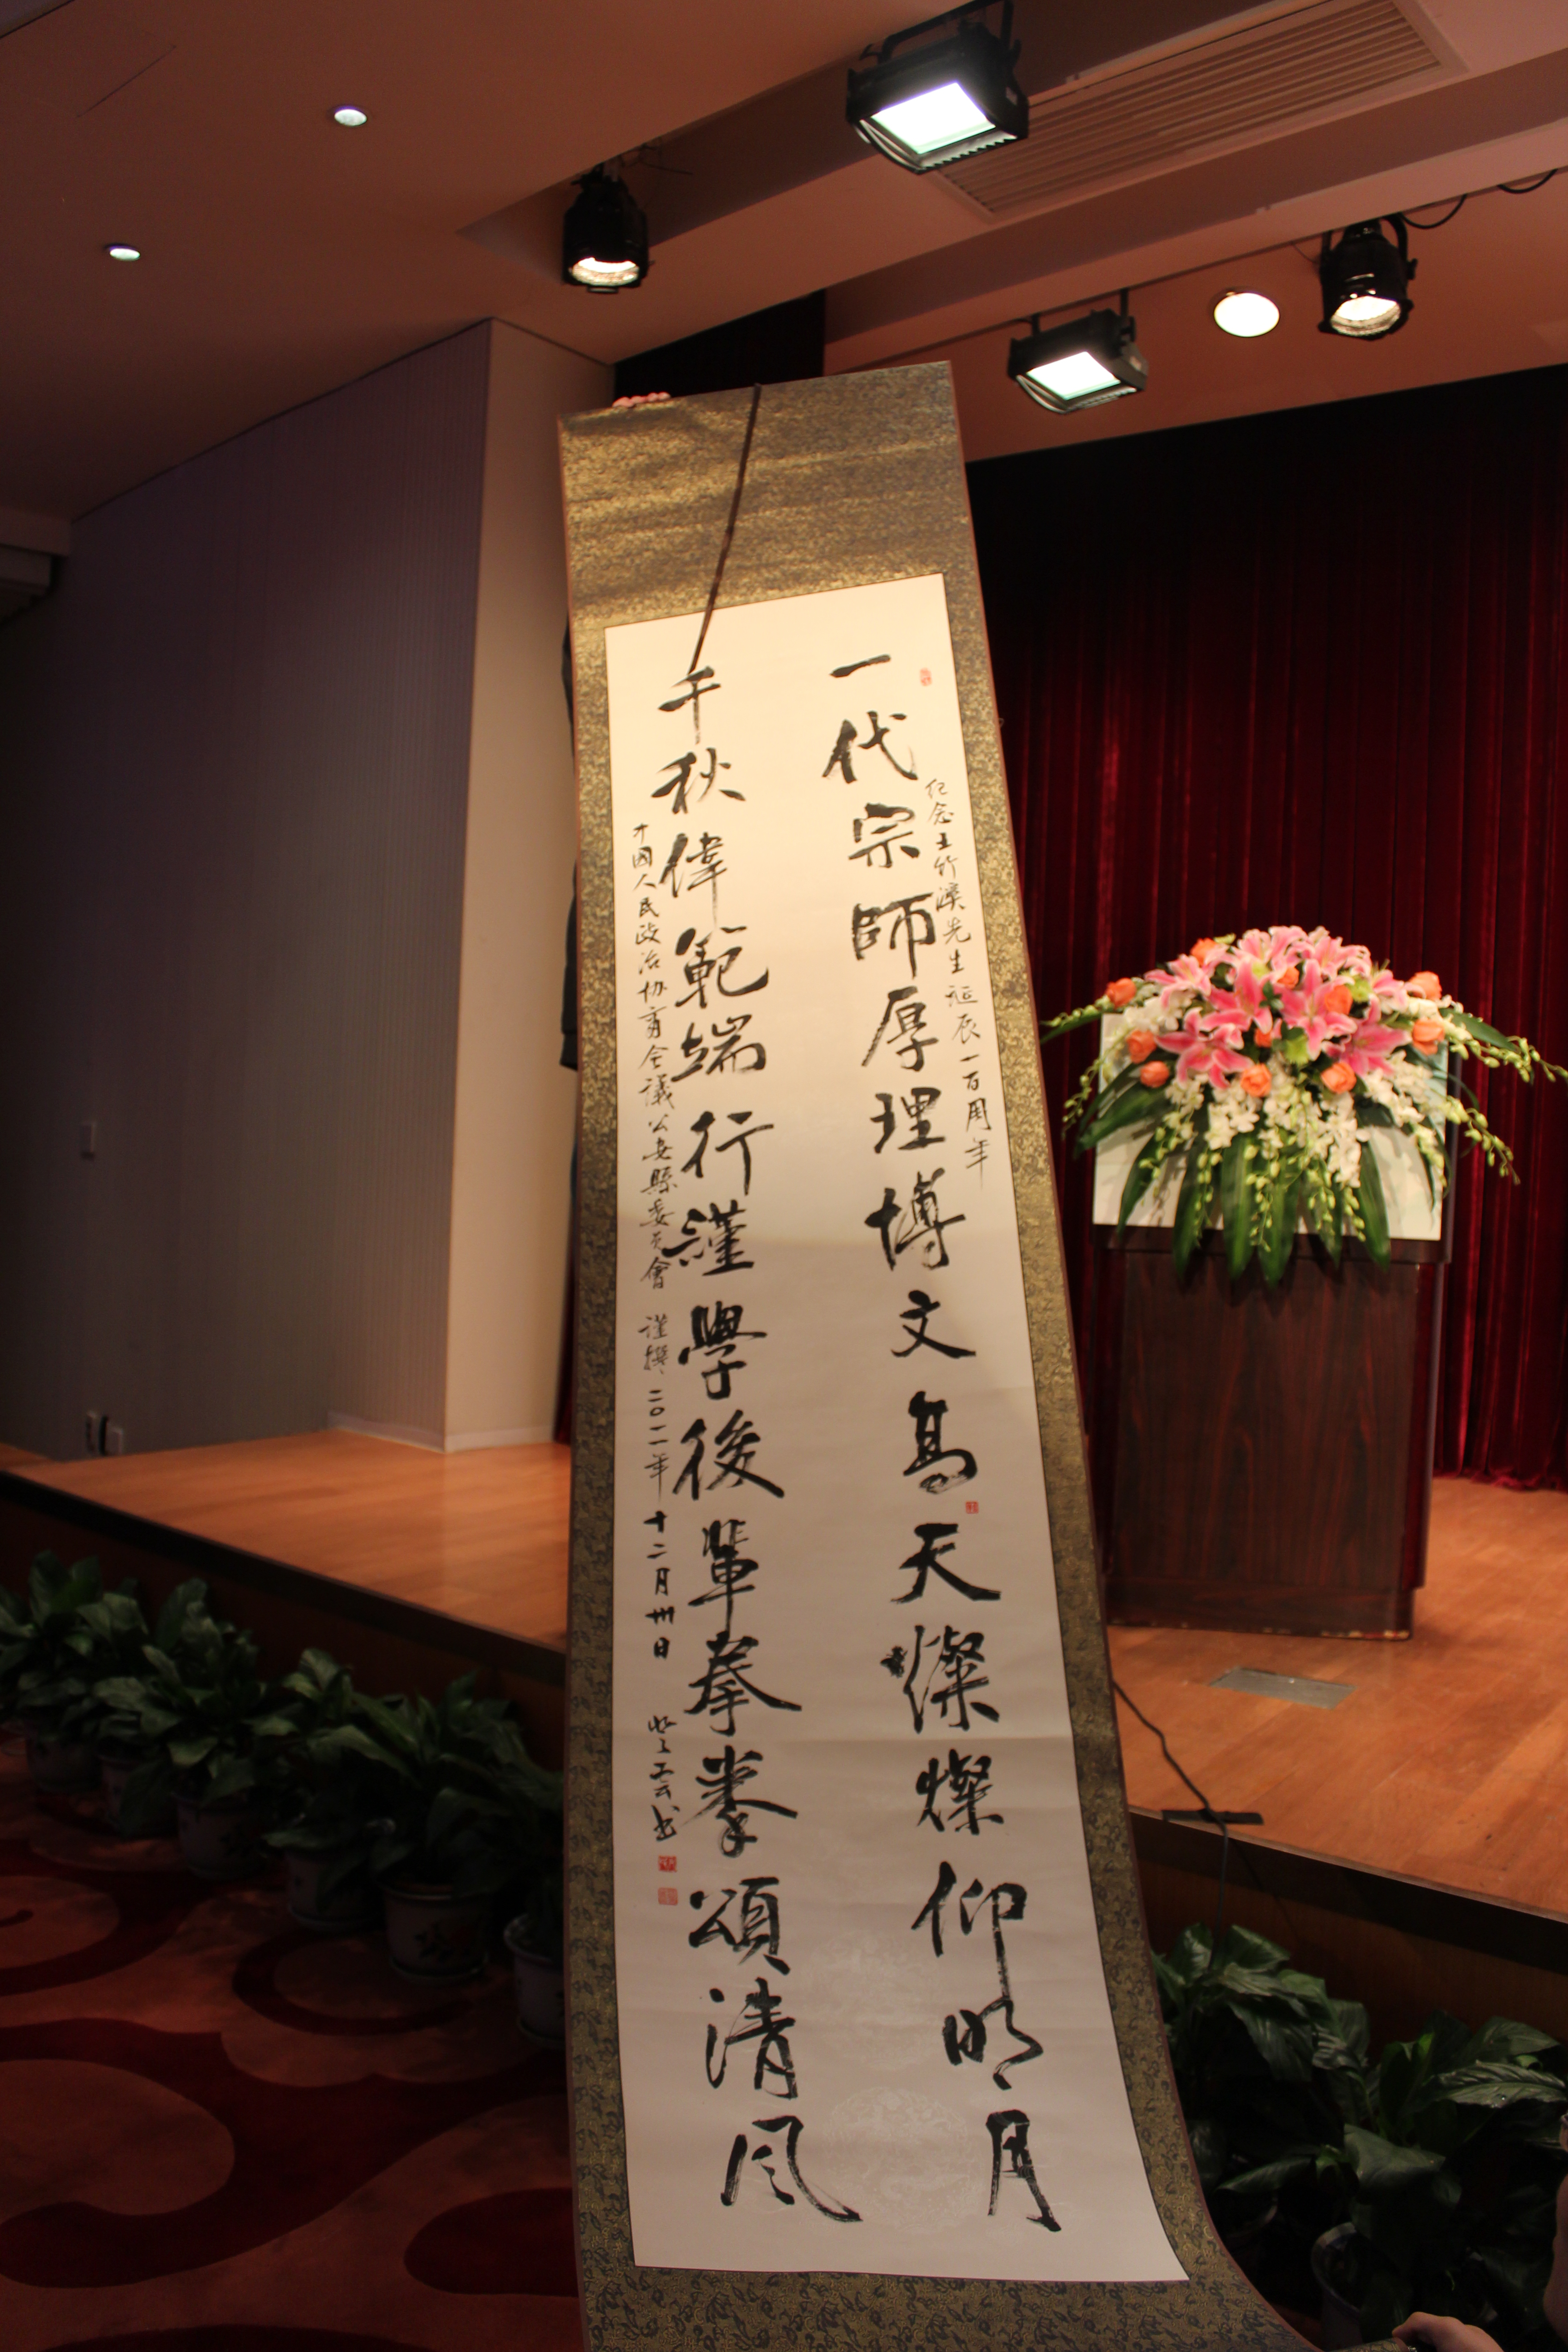 纪念王竹溪先生诞辰一百周年
一代宗師厚理博文高天燦燦仰明月
千秋偉範端行謹學後輩拳拳頌清风
中國人民政治协商会議公安縣委员會 谨撰 二〇一一年十二月卅日 书